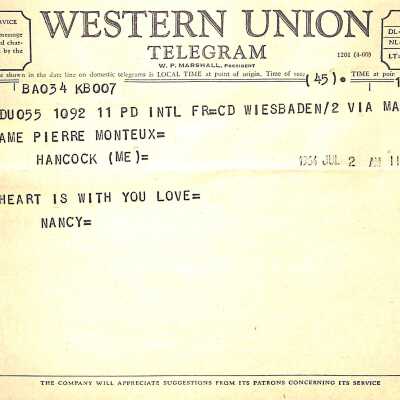 WESTERN UNION
TELEGRAM
W. P. MARSHALL, PRESIDENT
1201 (4-60)
SERVICE
message
DL=
NL=
LT=
shown in the date line on domestic telegrams is LOCAL TIME at point of origin. Time of
(45)
BA034 KB007
DU055 1092 11 PD INTL FR=CD WIESBADEN/2 VIA MA
AME PIERRE MONTEUX=
HANCOCK (ME)=
JUL 2 AM 11
HEART IS WITH YOU LOVE=
NANCY=
THE COMPANY WILL APPRECIATE SUGGESTIONS FROM ITS PATRONS CONCERNING ITS SERVICE